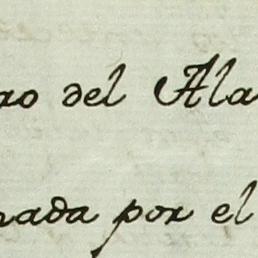 ro del Ala
nada por el